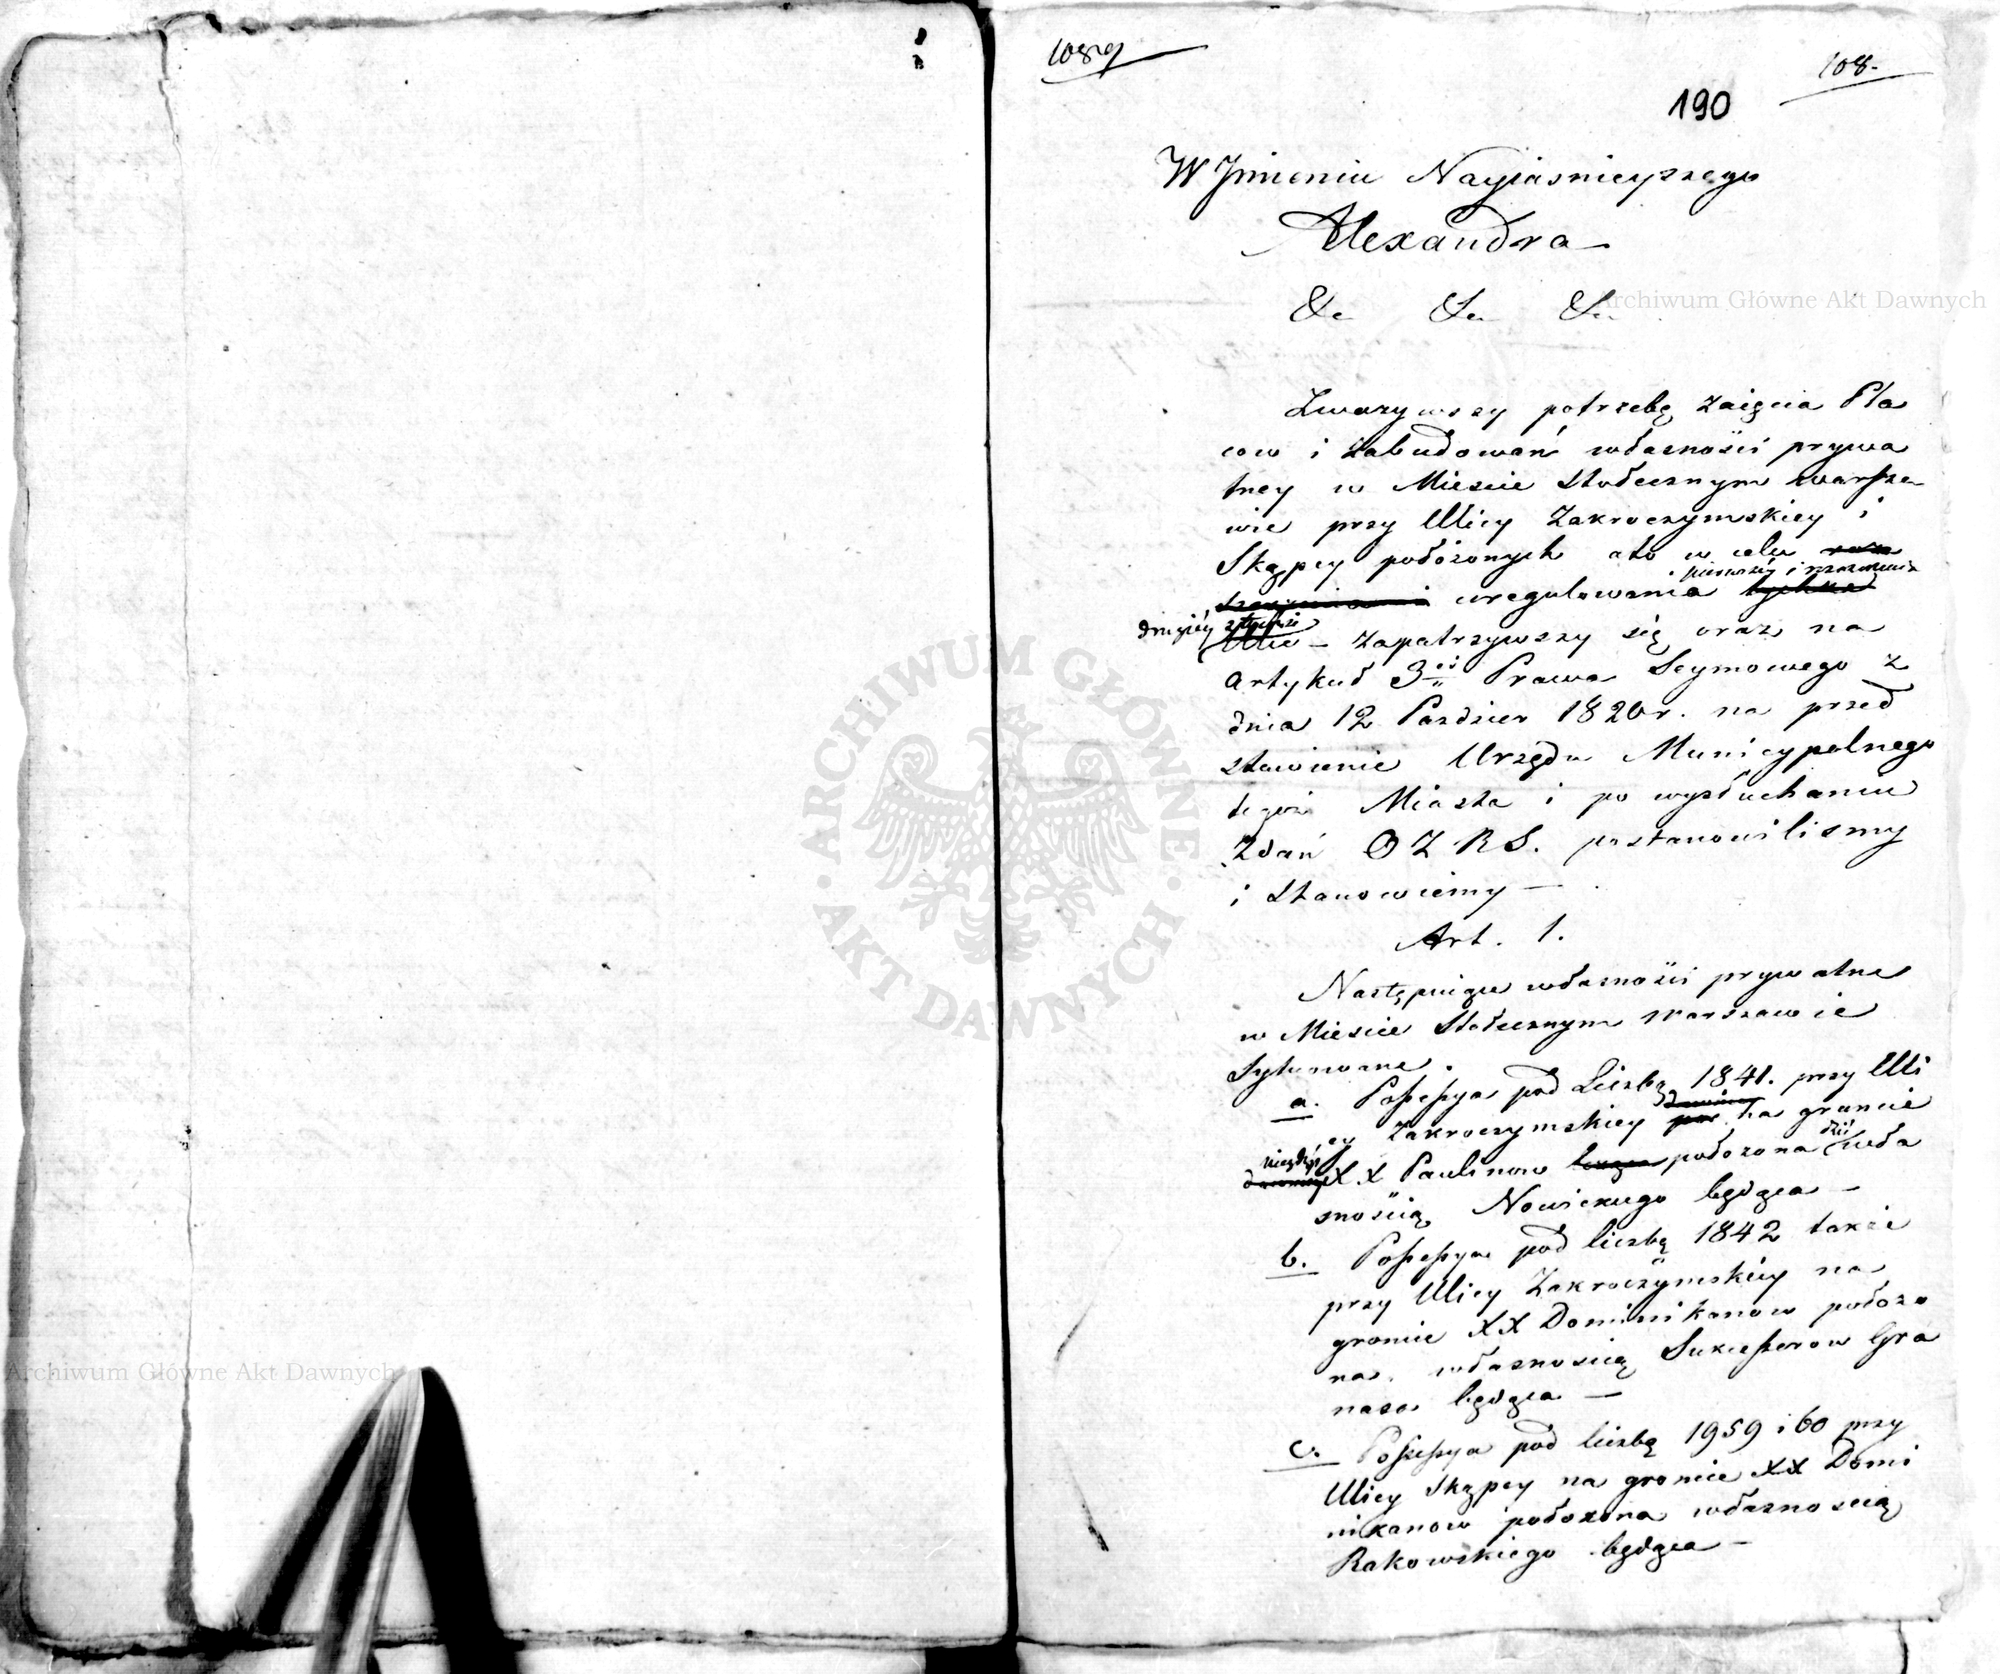 1089
108.
190
W Jmieniu Nayiasnieyszego
Alexandra
&c &c &c
Zważywszy potrzebę zaięcia Pla
ców i zabudowań własności prywa
tney w Miescie Stołecznym Warsza
wie przy Ulicy Zakroczymskiey i
Skąpey położonych a to w celu
uregulowania pierwszéy i
drugiéy
Ulic – zapatrzywszy się oraz na
Artykuł 3ci Prawa Seymowego z
dnia 12 Pazdzier 1820 r. na przed
stawienie Urzędu Municypalnego
tegoż Miasta i po wysłuchaniu
Zdań O Z R S. postanowilismy
i Stanowiemy —
Art. 1.
Następuiące własności prywatne
w Miescie Stołecznym Warszawie
Sytuowane.
a. Possessya pod Liczbą 1841. przy Uli
cy Zakroczymskiey na gruncie
niegdyś XX Paulinow położona dziś wła
snością Nowickiego będąca —
b. Possessya pod liczbą 1842 także
przy Ulicy Zakroczymskiéy na
gruncie XX Dominikanow położo
na własnoscią Sukcessorow Gra
nasa będąca —
c. Possessya pod liczbą 1959 i 60 przy
Ulicy Skąpey na gruncie XX Domi
nikanow położona własnoscią
Rakowskiego będąca —
Archiwum Główne Akt Dawnych
Archiwum Główne Akt Dawnych
ARCHIWUM GŁÓWNE
AKT DAWNYCH